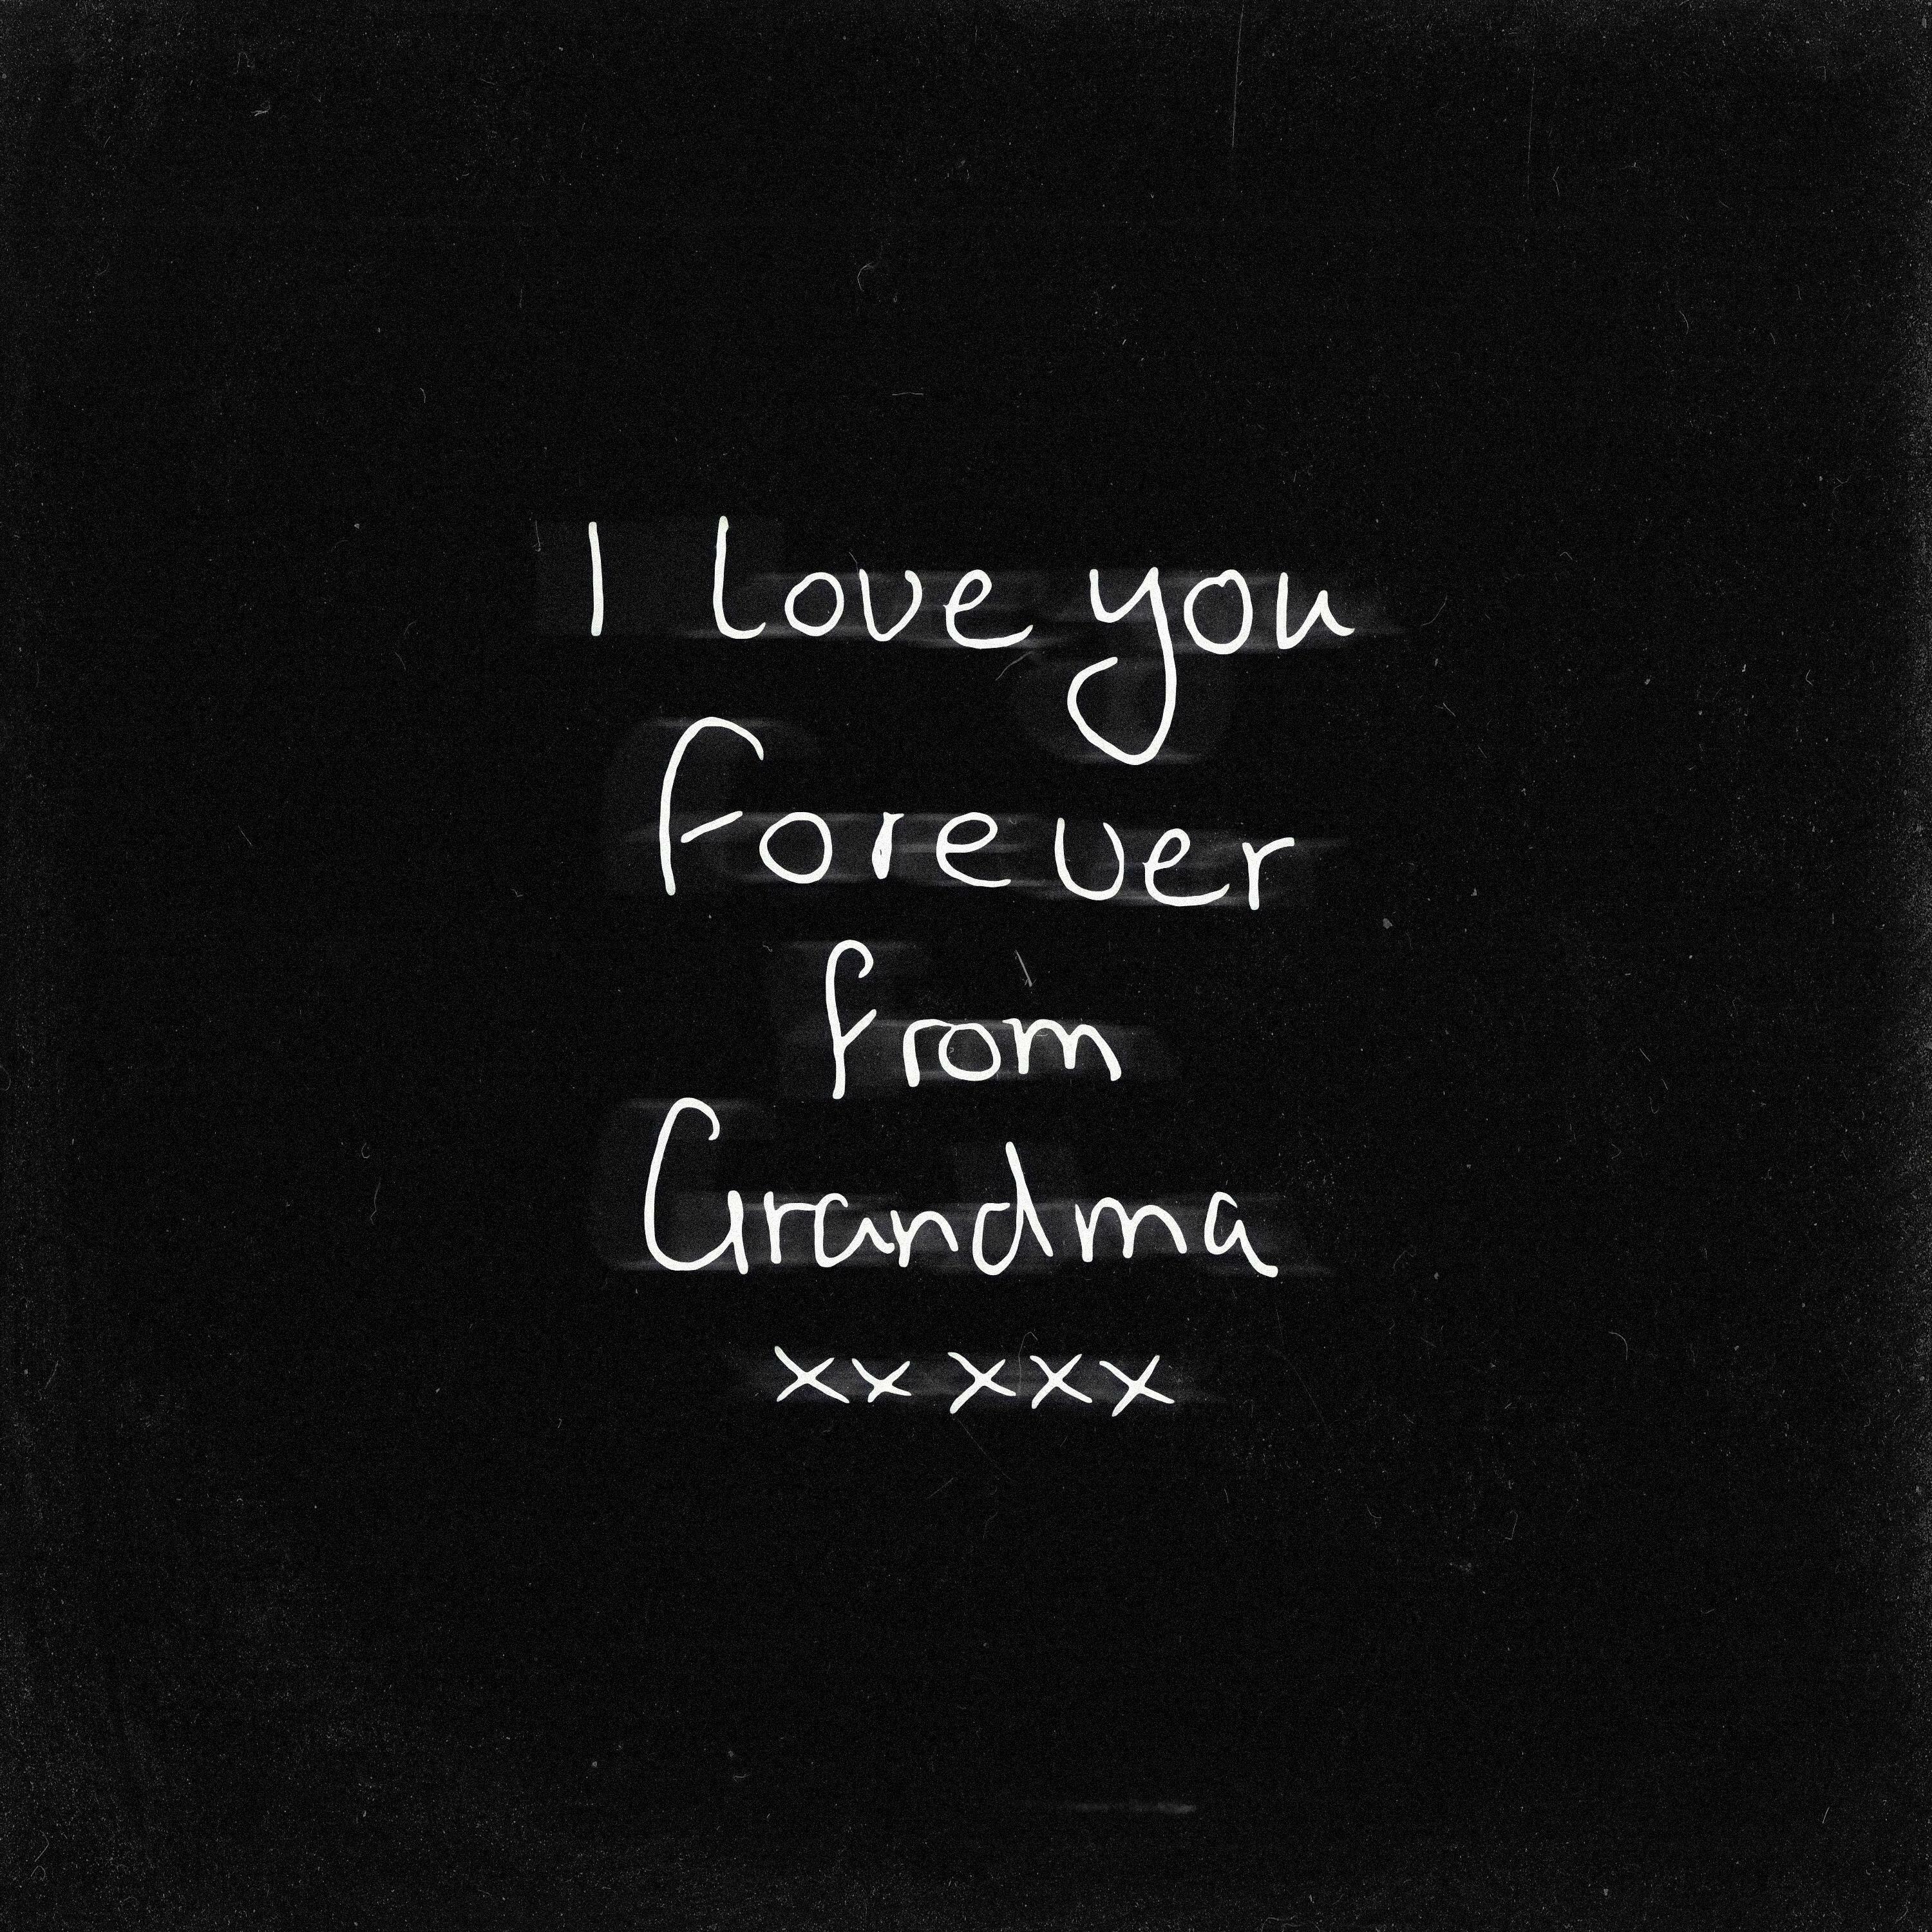 I love you
forever
from
Grandma
xx xxx